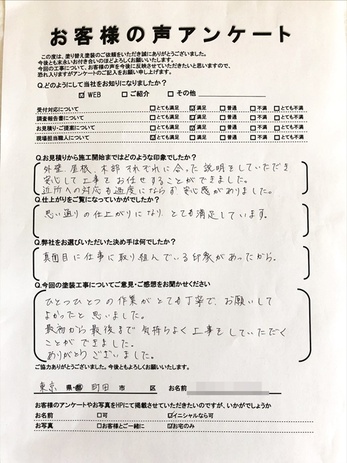 お客様の声アンケート
この度は、塗り替え塗装のご依頼をいただき誠にありがとうございました。
今後とも末永いお付き合いのほどよろしくお願いいたします。
今回の工事について、お客様の声を今後に反映させていただきたいと思いますので、
恐れ入りますがアンケートのご記入をお願い申し上げます。
Q.どのようにして当社をお知りになりましたか?
☑WEB □ご紹介 □その他
受付対応について □とても満足 ☑満足 □普通 □不満 □とても不満
調査報告書について □とても満足 ☑満足 □普通 □不満 □とても不満
お見積り・ご提案について □とても満足 ☑満足 □普通 □不満 □とても不満
現場担当職人について ☑とても満足 □満足 □普通 □不満 □とても不満
Q.お見積りから施工開始まではどのような印象でしたか?
外壁、屋根、木部 それぞれに合った説明をしていただき
安心して工事をお任せすることができました。
近所への対応も過度にならず安心感がありました。
Q.仕上がりをご覧になっていかがでしたか?
思い通りの仕上がりになり、とても満足しています。
Q.弊社をお選びいただいた決め手は何でしたか?
真面目に仕事に取り組んでいる印象があったから。
Q.今回の塗装工事についてご意見・ご感想をお聞かせください
ひとつひとつの作業がとても丁寧で、お願いして
よかったと思いました。
最初から最後まで気持ちよく工事をしていただく
ことができました。
ありがとうございました。
ご協力ありがとうございました。今後ともよろしくお願いいたします。
東京 県・都 町田 市 区 お名前
お客様のアンケートやお写真をHPに掲載させていただきたいのですが、いかがでしょうか
お名前 □可 ☑イニシャルなら可
お写真 □お客様とご一緒に ☑お宅のみ